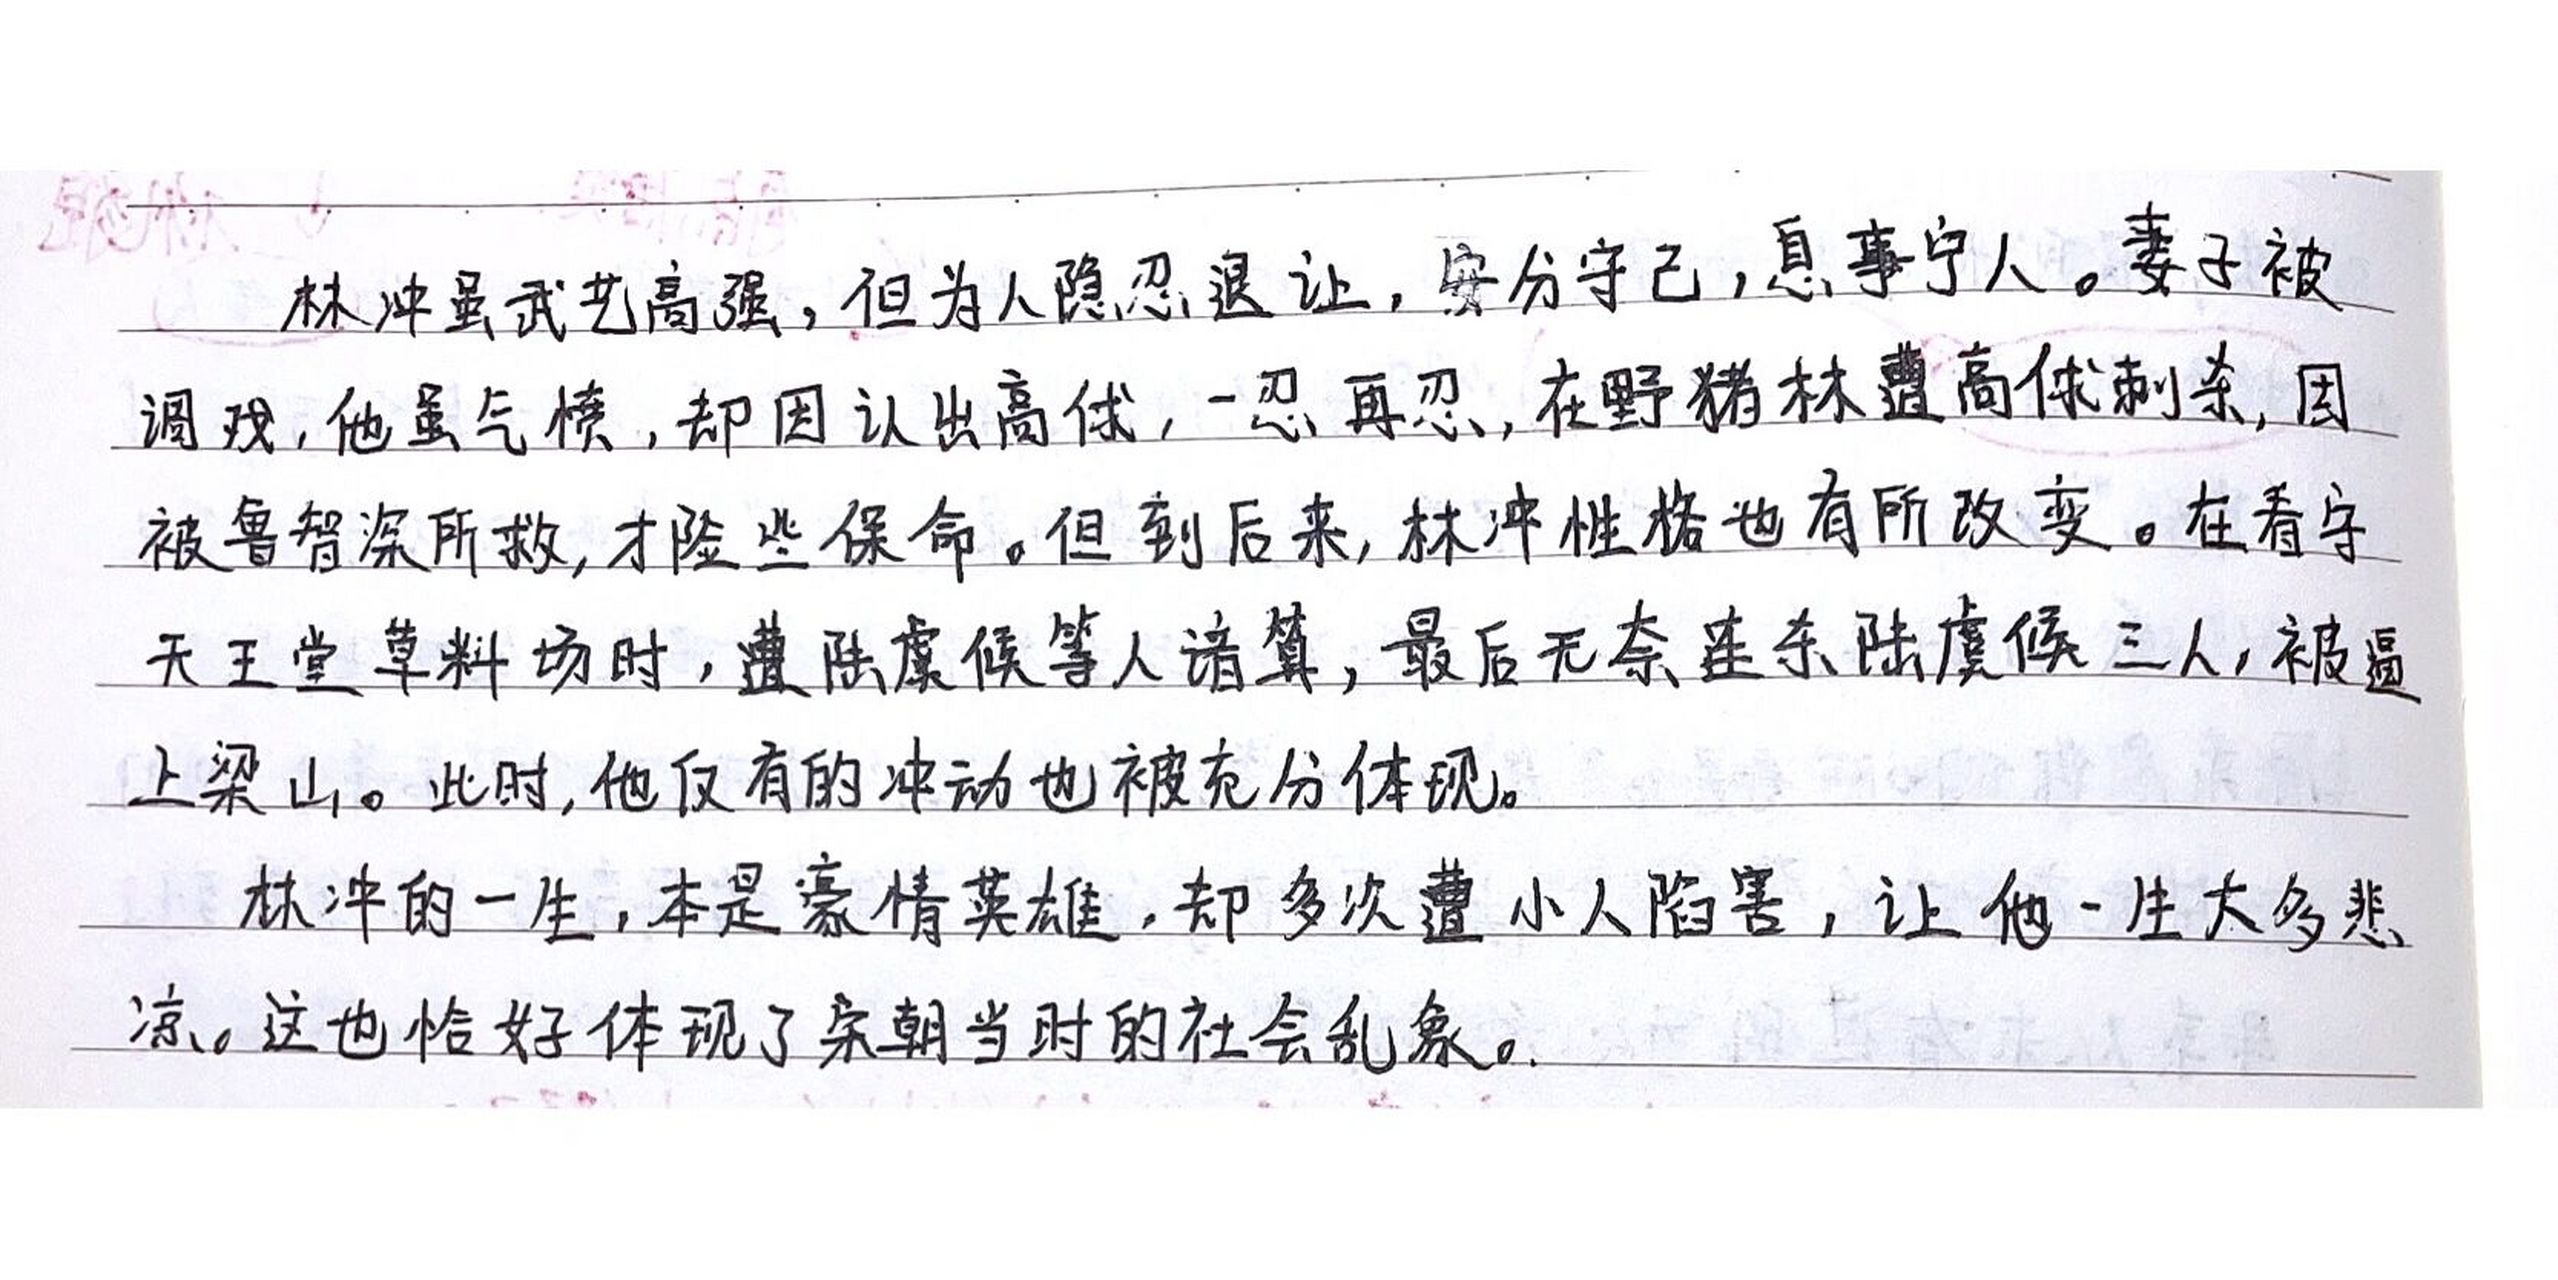 林冲虽武艺高强，但为人隐忍退让，安分守己，息事宁人。妻子被
调戏，他虽气愤，却因认出高俅，一忍再忍，在野猪林遭高俅刺杀，因
被鲁智深所救，才险些保命。但到后来，林冲性格也有所改变。在看守
天王堂草料场时，遭陆虞候等人谙算，最后无奈连杀陆虞候三人，被逼
上梁山。此时，他仅有的冲动也被充分体现。
林冲的一生，本是豪情英雄，却多次遭小人陷害，让他一生大多悲
凉。这也恰好体现了宋朝当时的社会乱象。